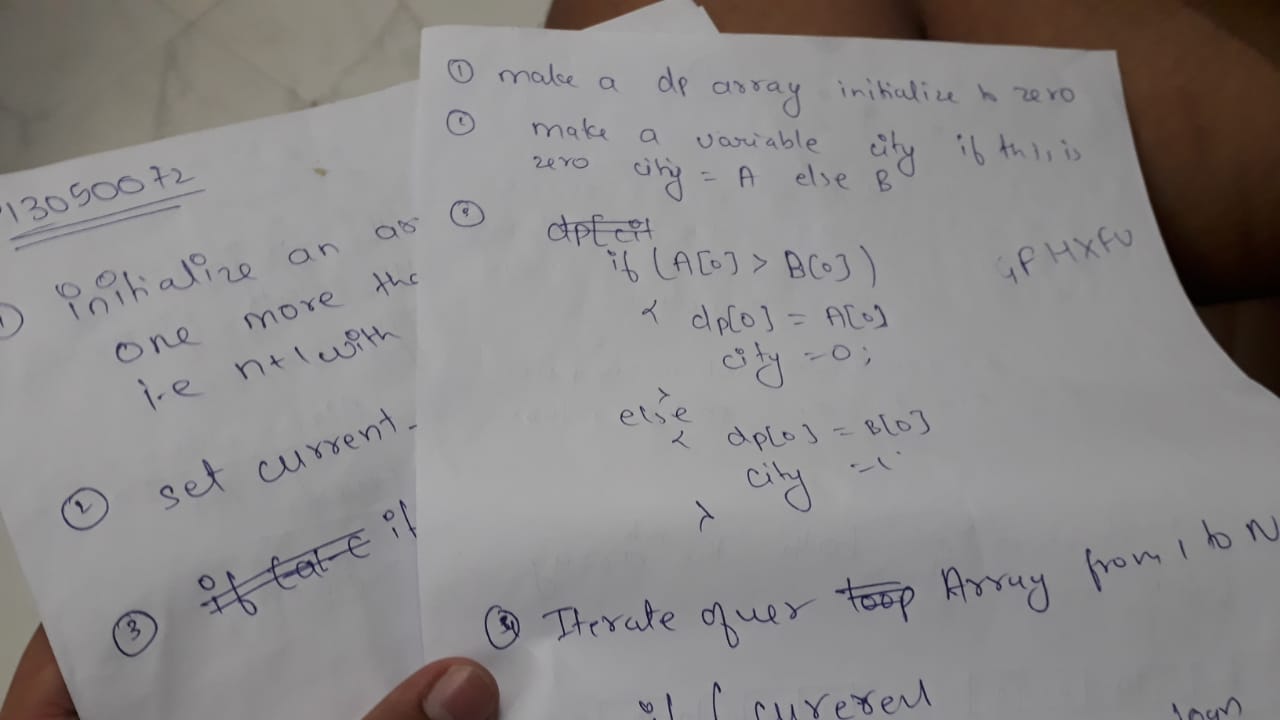 13050072
① initialize an ar
one more tha
i.e n+1 with
② set current-
③ if
① make a dp array initialize to zero
② make a variable city if this is
zero city = A else B
③ dp[cit
if (A[0] > B[0])
{ dp[0] = A[0]
city = 0;
}
else
{ dp[0] = B[0]
city = 1
}
GPHXFU
③ Iterate ofver loop Array from 1 to N
if ( cureren